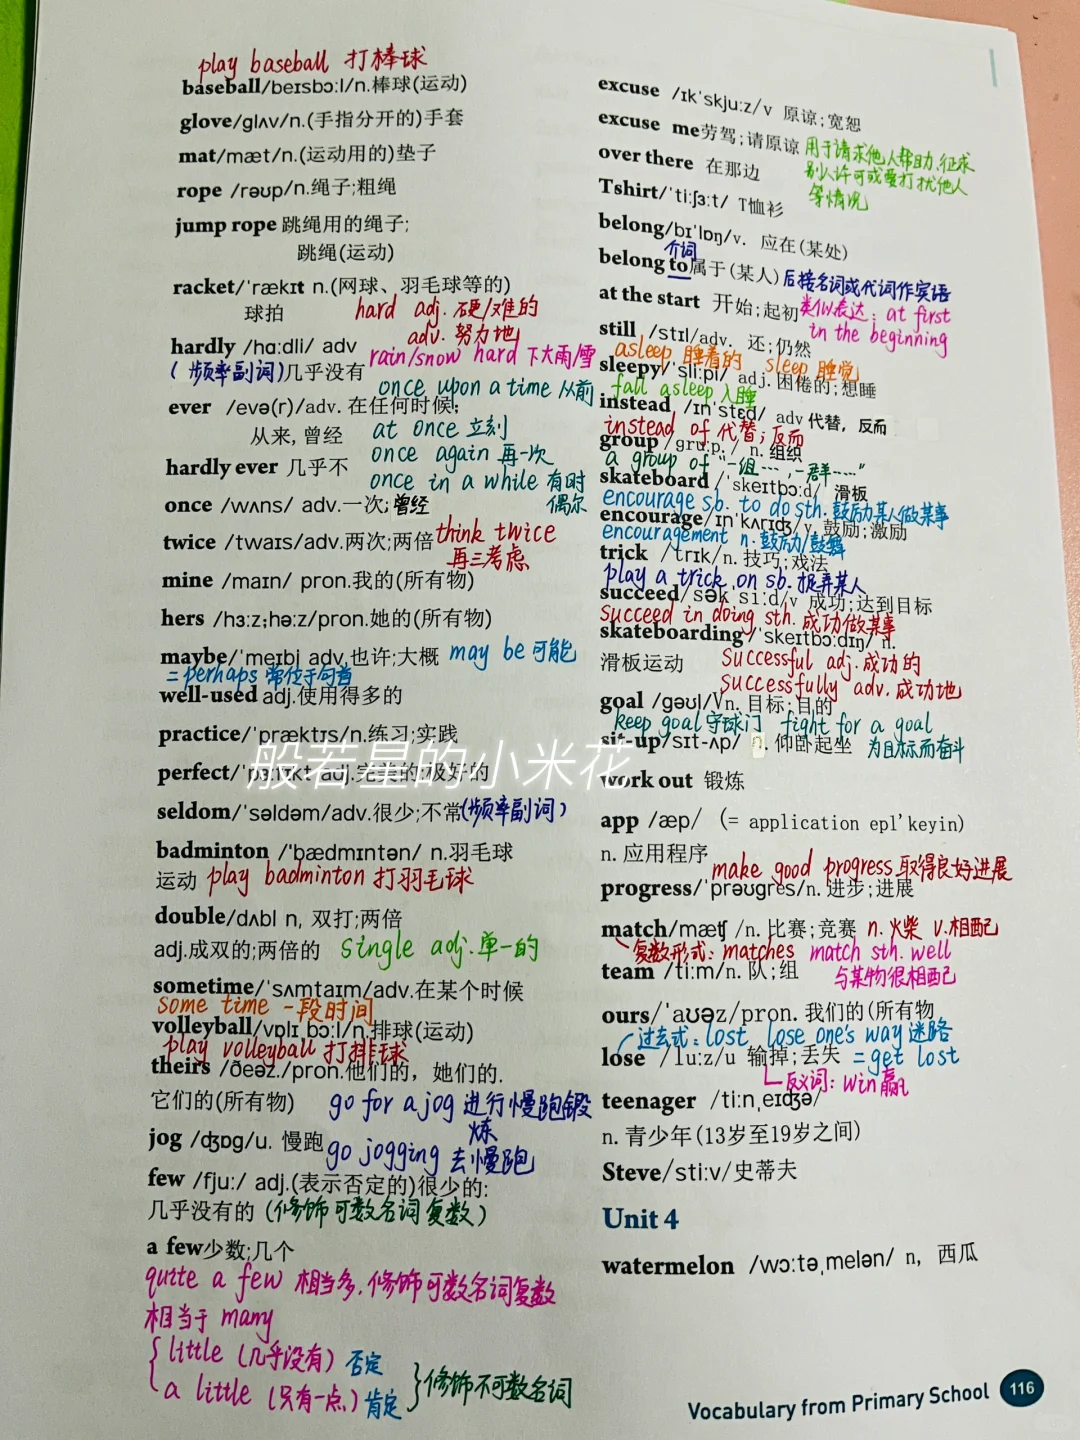 play baseball 打棒球
baseball/beɪsbɔːl/n.棒球(运动)
glove/glʌv/n.(手指分开的)手套
mat/mæt/n.(运动用的)垫子
rope /rəʊp/n.绳子;粗绳
jump rope 跳绳用的绳子;
跳绳(运动)
racket/ˈrækɪt n.(网球、羽毛球等的)
球拍
hard adj. 硬/难的
adv. 努力地
hardly /hɑːdli/ adv
rain/snow hard 下大雨/雪
(频率副词)几乎没有
once upon a time 从前
ever /evə(r)/adv. 在任何时候;
从来, 曾经
at once 立刻
once again 再一次
hardly ever 几乎不
once in a while 有时
偶尔
once /wʌns/ adv.一次;曾经
twice /twaɪs/adv.两次;两倍
think twice
再三考虑
mine /maɪn/ pron.我的(所有物)
hers /hɜːz;həːz/pron.她的(所有物)
maybe/ˈmeɪbi adv.也许;大概 may be 可能
=perhaps 常位于句首
well-used adj.使用得多的
practice/ˈpræktɪs/n.练习;实践
perfect/ adj.完美的;极好的
般若星的小米花
seldom/ˈsəldəm/adv.很少;不常(频率副词)
badminton /ˈbædmɪntən/ n.羽毛球
运动 play badminton 打羽毛球
double/dʌbl n, 双打;两倍
adj.成双的;两倍的 single adj.单一的
sometime/ˈsʌmtaɪm/adv.在某个时候
some time 一段时间
volleyball/vɒlɪˌbɔːl/n.排球(运动)
play volleyball 打排球
theirs /ðeəz./pron.他们的, 她们的.
它们的(所有物)
go for a jog 进行慢跑锻
炼
jog /dʒɒg/u. 慢跑
go jogging 去慢跑
few /fjuː/ adj.(表示否定的)很少的:
几乎没有的 (修饰可数名词复数)
a few少数;几个
quite a few 相当多,修饰可数名词复数
相当于 many
little (几乎没有) 否定
a little (只有一点) 肯定
修饰不可数名词
excuse /ɪkˈskjuːz/v 原谅;宽恕
excuse me劳驾;请原谅
用于请求他人帮助、征求
别人许可或要打扰他人
等情况
over there 在那边
Tshirt/ˈtiːʃɜːt/ T恤衫
belong/bɪˈlɒŋ/v. 应在(某处)
介词
belong to属于(某人)后接名词或代词作宾语
at the start 开始;起初
类似表达: at first
in the beginning
still /stɪl/adv. 还;仍然
asleep 睡着的 sleep 睡觉
sleepy/ˈsliːpi/ adj.困倦的;想睡
fall asleep 入睡
instead /ɪnˈstɛd/ adv 代替, 反而
instead of 代替;反而
group /gruːp: / n. 组织
a group of "一组…,一群……"
skateboard /ˈskeɪtbɔːd/ 滑板
encourage sb. to do sth. 鼓励某人做某事
encourage/ɪnˈkʌrɪdʒ/v. 鼓励;激励
encouragement n. 鼓励/鼓舞
trick /trɪk/n. 技巧;戏法
play a trick on sb. 捉弄某人
succeed/səkˈsiːd/v 成功;达到目标
succeed in doing sth. 成功做某事
skateboarding /ˈskeɪtbɔːdɪŋ/ n.
滑板运动
successful adj.成功的
successfully adv.成功地
goal /gəʊl/Vn. 目标;目的
keep goal 守球门 fight for a goal
为目标而奋斗
sit-up/sɪt-ʌp/ n. 仰卧起坐
work out 锻炼
app /æp/ (= application epl'keyin)
n. 应用程序
make good progress 取得良好进展
progress/ˈprəʊgres/n. 进步;进展
match/mætʃ /n. 比赛;竞赛 n.火柴 v.相配
复数形式: matches match sth. well
与某物很相配
team /tiːm/n. 队;组
ours/ˈaʊəz/pron. 我们的(所有物
过去式: lost lose one's way 迷路
lose /luːz/u 输掉;丢失 =get lost
反义词: win赢
teenager /tiːnˌeɪdʒə/
n. 青少年(13岁至19岁之间)
Steve/stiːv/史蒂夫
Unit 4
watermelon /wɔːtəˌmelən/ n, 西瓜
Vocabulary from Primary School 116